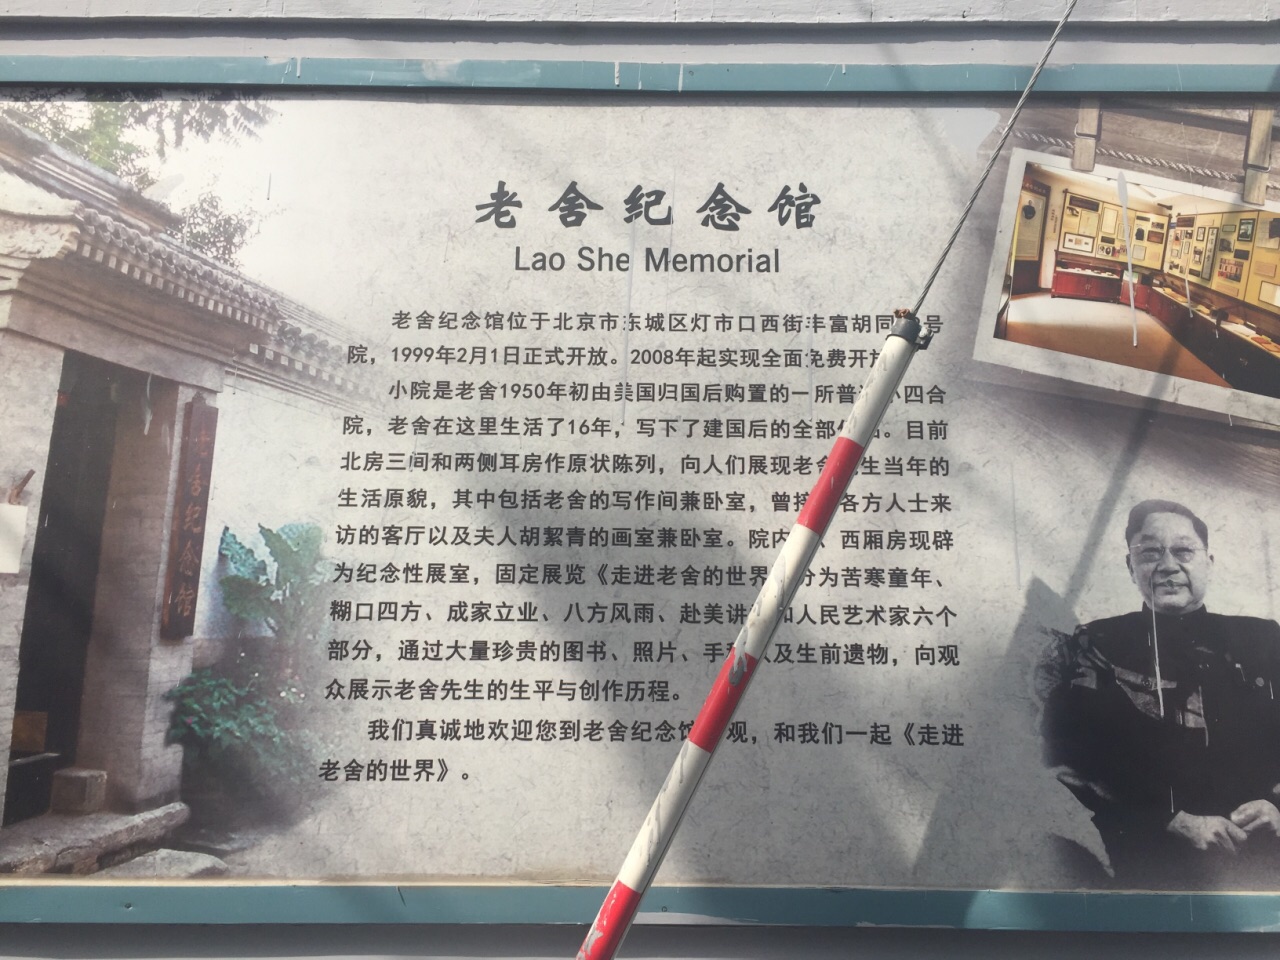 老舍纪念馆
Lao She Memorial
老舍纪念馆位于北京市东城区灯市口西街丰富胡同 号
院，1999年2月1日正式开放。2008年起实现全面免费开放
小院是老舍1950年初由美国归国后购置的一所普通小四合
院，老舍在这里生活了16年，写下了建国后的全部作品。目前
北房三间和两侧耳房作原状陈列，向人们展现老舍先生当年的
生活原貌，其中包括老舍的写作间兼卧室，曾接 各方人士来
访的客厅以及夫人胡絜青的画室兼卧室。院内 、西厢房现辟
为纪念性展室，固定展览《走进老舍的世界 分为苦寒童年、
糊口四方、成家立业、八方风雨、赴美讲 和人民艺术家六个
部分，通过大量珍贵的图书、照片、手 以及生前遗物，向观
众展示老舍先生的生平与创作历程。
我们真诚地欢迎您到老舍纪念馆 观，和我们一起《走进
老舍的世界》。
老舍纪念馆